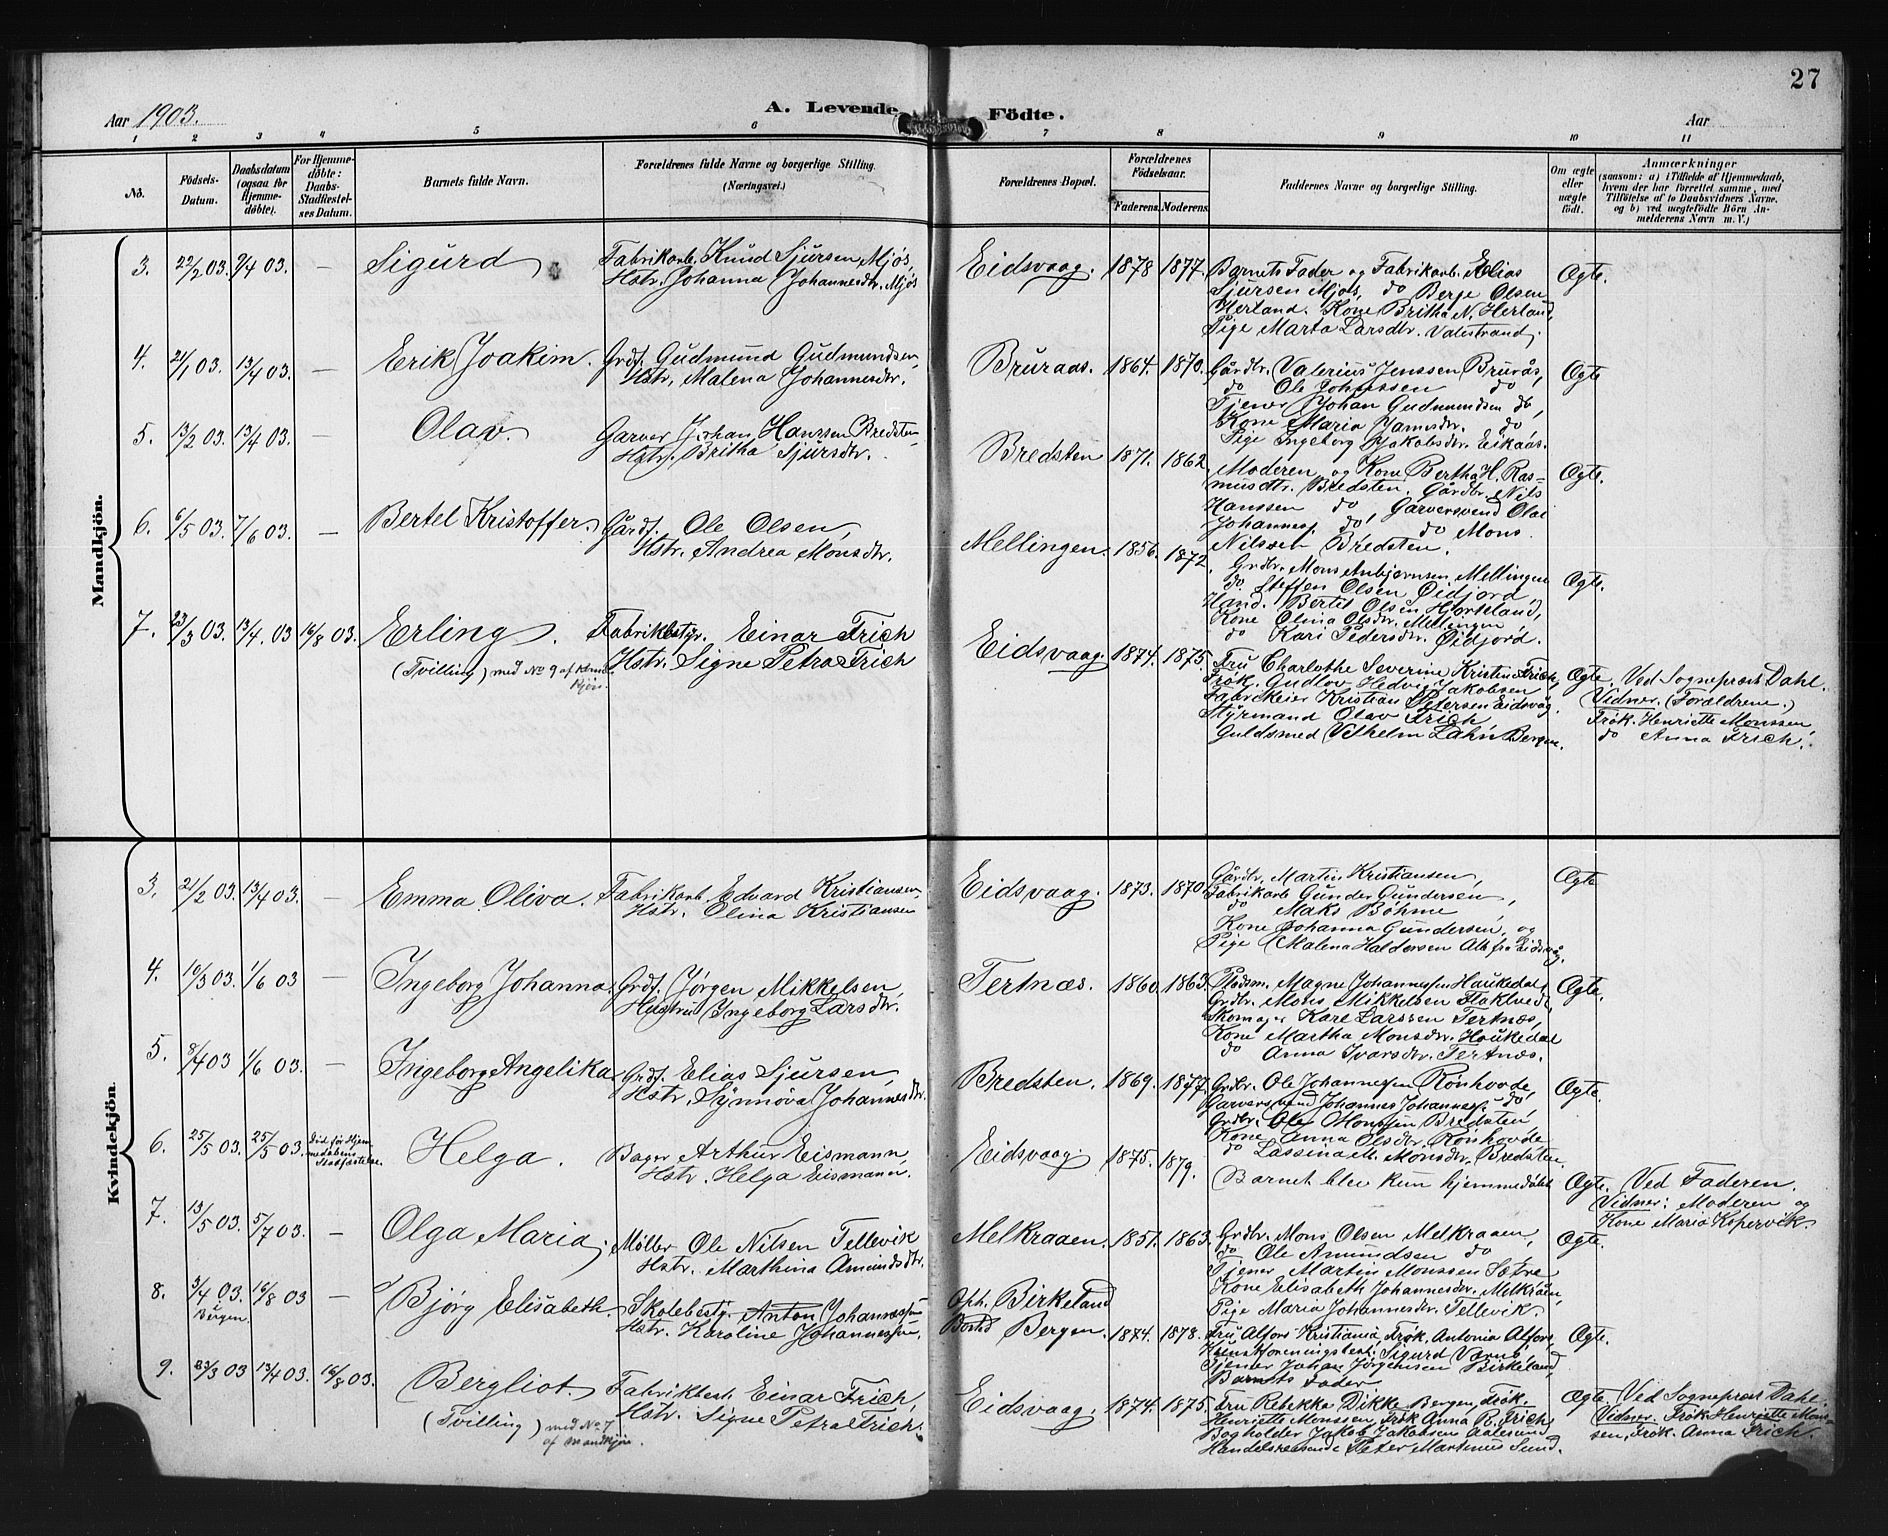 27
Aar 1903.
A. Levende Födte.
Aar
1 2 3 4 5 6 7 8 9 10 11
No.
Födsels-Datum.
Daabsdatum (ogsaa for Hjemmedöbte).
For Hjemmedöbte: Daabs-Stadfæstelses Datum.
Barnets fulde Navn.
Forældrenes fulde Navne og borgerlige Stilling. (Næringsvei.)
Forældrenes Bopæl.
Forældrenes Födselsaar.
Faderens. Moderens.
Faddernes Navne og borgerlige Stilling.
Om ægte eller uægte födt.
Anmærkninger
(saasom: a) i Tilfælde af Hjemmedaab, hvem der har forrettet samme, med Tilföielse af to Daabsvidners Navne, og b) ved uægtefödte Börn Anmelderens Navn m. V.)
Mandkjön.
3. 22/2 03. 9/4 03. — Sigurd
Fabrikarb. Knud Sjursen Mjøs,
Hstr. Johanna Johannesdtr. Mjøs
Eidsvaag. 1878 1877.
Barnets Fader og Fabrikarb. Elias
Sjursen Mjøs, do Berge Olsen
Herland. Kone Britha N. Herland,
Pige Marta Larsdtr. Valestrand.
Ægte.
4. 21/1 03. 13/4 03. — Erik Joakim.
Grdf. Gudmund Gudmundsen,
Hstr. Malena Johannesdtr.
Bruraas. 1864. 1870.
Gårdbr. Valerius Jenssen Brurås,
do Ole Johnssen do
Tjener Johan Gudmundsen do,
Kone Maria do
Pige Ingeborg Jakobsdtr. Eikaas.
Ægte
5. 13/2 03. 13/4 03. — Olav.
Garver Johan Hanssen Bredsten,
Hstr. Britha Sjursdtr.
Bredsten 1871. 1862.
Moderen og Kone Bertha H. Ras-
musdtr. Bredsten. Gårdbr. Nils
Hanssen do, Garversvend Olai
Johannes do, do Mons
Nilssen Bredsten.
Ægte.
6. 6/5 03. 7/6 03. — Bertel Kristoffer.
Gårdf. Ole Olsen,
Hstr. Andrea Monsdtr.
Mellingen. 1856. 1872.
Grdbr. Mons Anbjørnsen Mellingen
do Steffen Olsen Øidjord,
Hand. Bertel Olsen Hjorteland,
Kone Olina Olsdtr. Mellingen
do Kari Pedersdtr. Øidjord.
Ægte.
7. 23/3 03. 13/4. 03 16/8 03. Erling.
(Tvilling) med No 9 af Kvinde-
kjön.
Fabrikbstyr. Einar Frich
Hstr. Signe Petra Frich
Eidsvaag. 1874. 1875.
Fru Charlothe Severine Kristine Frich,
Frøk. Gudlov Hedvig Jakobsen
Fabrikeier Kristian Petersen Eidsvåg.
Styrmand Olav Frich,
Guldsmed Vilhelm Lahn Bergen.
Ægte.
Ved Sogneprest Dahl.
Vidner. (Forældrene.)
Frøk. Henriette Monssen,
do Anna Frich.
Kvindekjön.
3. 21/2 03. 13/4 03. — Emma Oliva.
Fabrikarb. Edvard Kristiansen,
Hstr. Olina Kristiansen
Eidsvaag. 1873. 1870.
Gårdbr. Martin Kristiansen,
Fabrikarb. Gunder Gundersen,
do Maks Bøhme,
Kone Johanna Gundersen, og
Pige Malena Haldorsen Alle fra Eidsvåg.
Ægte
4. 10/3 03. 1/6 03 — Ingeborg Johanna.
Grdf. Jørgen Mikkelsen,
Hustru Ingeborg Larsdtr.
Tertnæs. 1860. 1863.
Pladsm. Magne Johannessen Haukedal,
Grdbr. Mons Mikkelsen Flaktvedt,
Skomager Karl Larssen Tertnæs,
Kone Martha Monsdtr. Haukedal
do Anna Ivarsdtr. Tertnæs.
Ægte.
5. 8/4 03 1/6 03. — Ingeborg Angelika
Grdf. Elias Sjursen,
Hstr. Synnöva Johannesdtr.
Bredsten. 1869. 1877.
Grdbr. Ole Johannessen Rönhovde,
Garversvend Johannes Johannes. do
Grdbr. Ole Monssen Bredsten,
Kone Anna Olsdtr. Rönhovde
do Lassina M. Monsdtr. Bredsten.
Ægte.
6. 25/5 03. 25/5 03. Död før Hjem-
medaabens
Stadfæstelse.
Helga.
Bager Arthur Eismann,
Hstr. Helga Eismann.
Eidsvaag. 1875. 1879.
Barnet blev kun hjemmedøbt
Ægte.
Ved Faderen.
Vidner: Moderen og
Kone Maria Kopervik.
7. 13/5 03. 5/7 03. — Olga Maria.
Møller Ole Nilsen Tellevik
Hstr. Marthina Amundsdtr.
Melkraaen. 1851. 1863.
Grdbr. Mons Olsen Melkraaen,
do Ole Amundsen do
Tjener Martin Monssen Sætre
Kone Elisabeth Johannesdtr. Melkråen,
Pige Maria Johannesdtr. Tellevik.
Ægte.
8. 3/4 03.
Bergen.
16/8 03 — Bjørg Elisabeth.
Skolebesty. Anton Johannessen
Hstr. Karoline Johannessen.
Oph. Birkeland
Bosted Bergen. 1874. 1878.
Fru Alfors Kristiania, Frøk. Antonia Alfors,
Kunstforeningsbest. Sigurd Værnø,
Tjener Johan Jørgensen Birkeland,
Barnets Fader
Ægte.
9. 23/3 03 13/4 03. 16/8 03. Bergliot.
(Tvilling) med No. 7
af Mandkjön.
Fabrikbest. Einar Frich,
Hstr. Signe Petra Frich.
Eidsvaag. 1874. 1875.
Fru Rebekka Dikke Bergen, Frøk.
Henriette Monssen, Frøk Anna R. Frich,
Bogholder Jakob Jakobsen Aalesund
Handelsreisende Peter Martinus Sund.
Ægte
Ved Sogneprest Dahl.
Vidner. Frøk Henriette Mons-
sen, Frøk. Anna Frich.